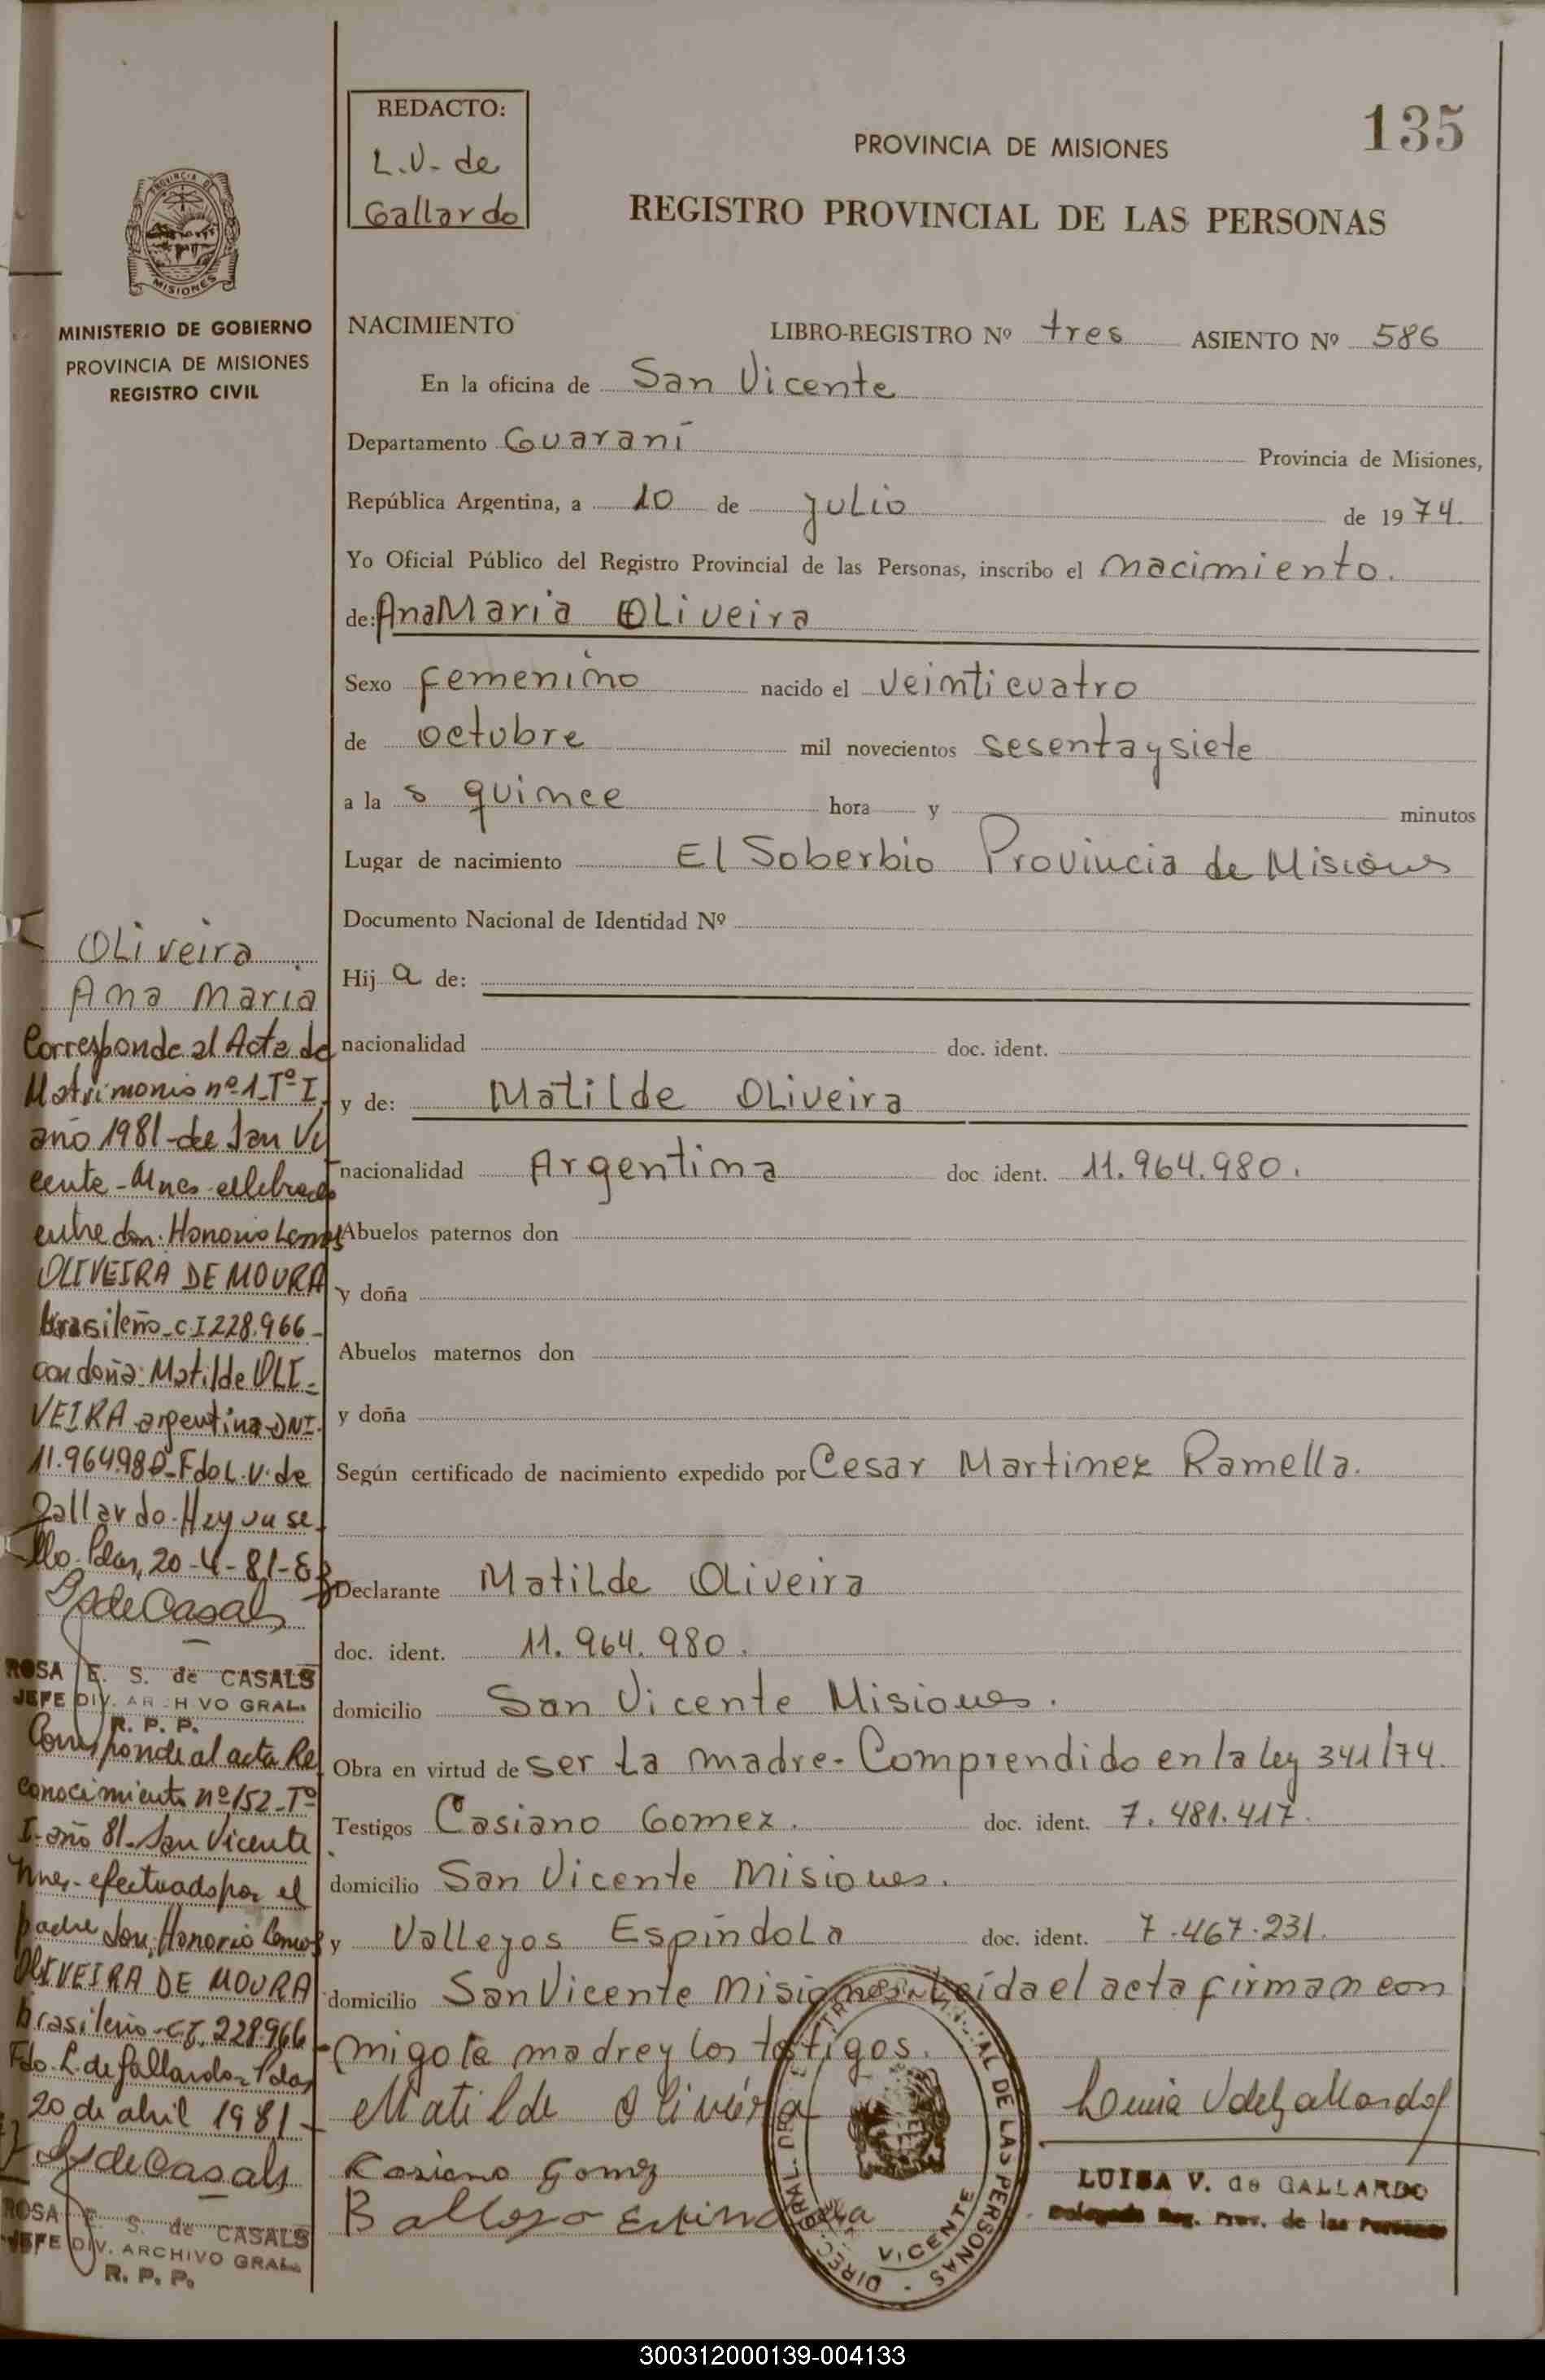 REDACTO:
L.V. de
Gallardo
PROVINCIA DE MISIONES
135
REGISTRO PROVINCIAL DE LAS PERSONAS
PROVINCIA DE
MISIONES
MINISTERIO DE GOBIERNO
PROVINCIA DE MISIONES
REGISTRO CIVIL
NACIMIENTO LIBRO-REGISTRO Nº tres ASIENTO Nº 586
En la oficina de San Vicente
Departamento Guaraní Provincia de Misiones,
República Argentina, a 10 de julio de 1974.
Yo Oficial Público del Registro Provincial de las Personas, inscribo el nacimiento.
de: Ana Maria Oliveira
Sexo femenino nacido el veinticuatro
de octubre mil novecientos sesenta y siete
a la s quince hora y minutos
Lugar de nacimiento El Soberbio Provincia de Misiones
Documento Nacional de Identidad Nº
Hij a de:
nacionalidad doc. ident.
y de: Matilde Oliveira
nacionalidad Argentina doc ident. 11.964.980.
Abuelos paternos don
y doña
Abuelos maternos don
y doña
Según certificado de nacimiento expedido por Cesar Martinez Ramella.
Declarante Matilde Oliveira
doc. ident. 11.964.980.
domicilio San Vicente Misiones.
Obra en virtud de ser la madre- Comprendido en la ley 341/74.
Testigos Casiano Gomez. doc. ident. 7.481.417.
domicilio San Vicente Misiones.
y Vallejos Espíndola doc. ident. 7.467.231.
domicilio San Vicente Misiones. Leída el acta firman con
migo la madre y los testigos.
Matilde Olivéra
Casiano Gomez
Luisa V de Gallardo
LUISA V. de GALLARDO
Delegada Reg. Prov. de las Personas
DIREC. GRAL. DEL REGISTRO PROVINCIAL DE LAS PERSONAS
VICENTE
Oliveira
Ana Maria
Corresponde al Acta de
Matrimonio nº 1-Tº I,
año 1981-de San Vi
cente-Mnes-celebrado
entre don: Honorio Lemos
OLIVEIRA DE MOURA
brasileño-C.I 228.966-
con doña: Matilde OLI-
VEIRA argentina-DNI.
11.964980-Fdo L.V. de
Gallardo-Hay un se-
llo-Pdas, 20-4-81-
S de Casals
ROSA E. S. de CASALS
JEFE DIV. ARCHIVO GRAL.
R. P. P.
Corresponde al acta Re
conocimiento nº 152-Tº
I-año 81-San Vicente
Mnes-efectuado por el
padre don: Honorio Lemos
OLIVEIRA DE MOURA
brasileño-CI. 228.966-
Fdo. L. de Gallardo-Pdas
20 de abril 1981-
S de Casals
ROSA E. S. de CASALS
JEFE DIV. ARCHIVO GRAL.
R. P. P.
300312000139-004133